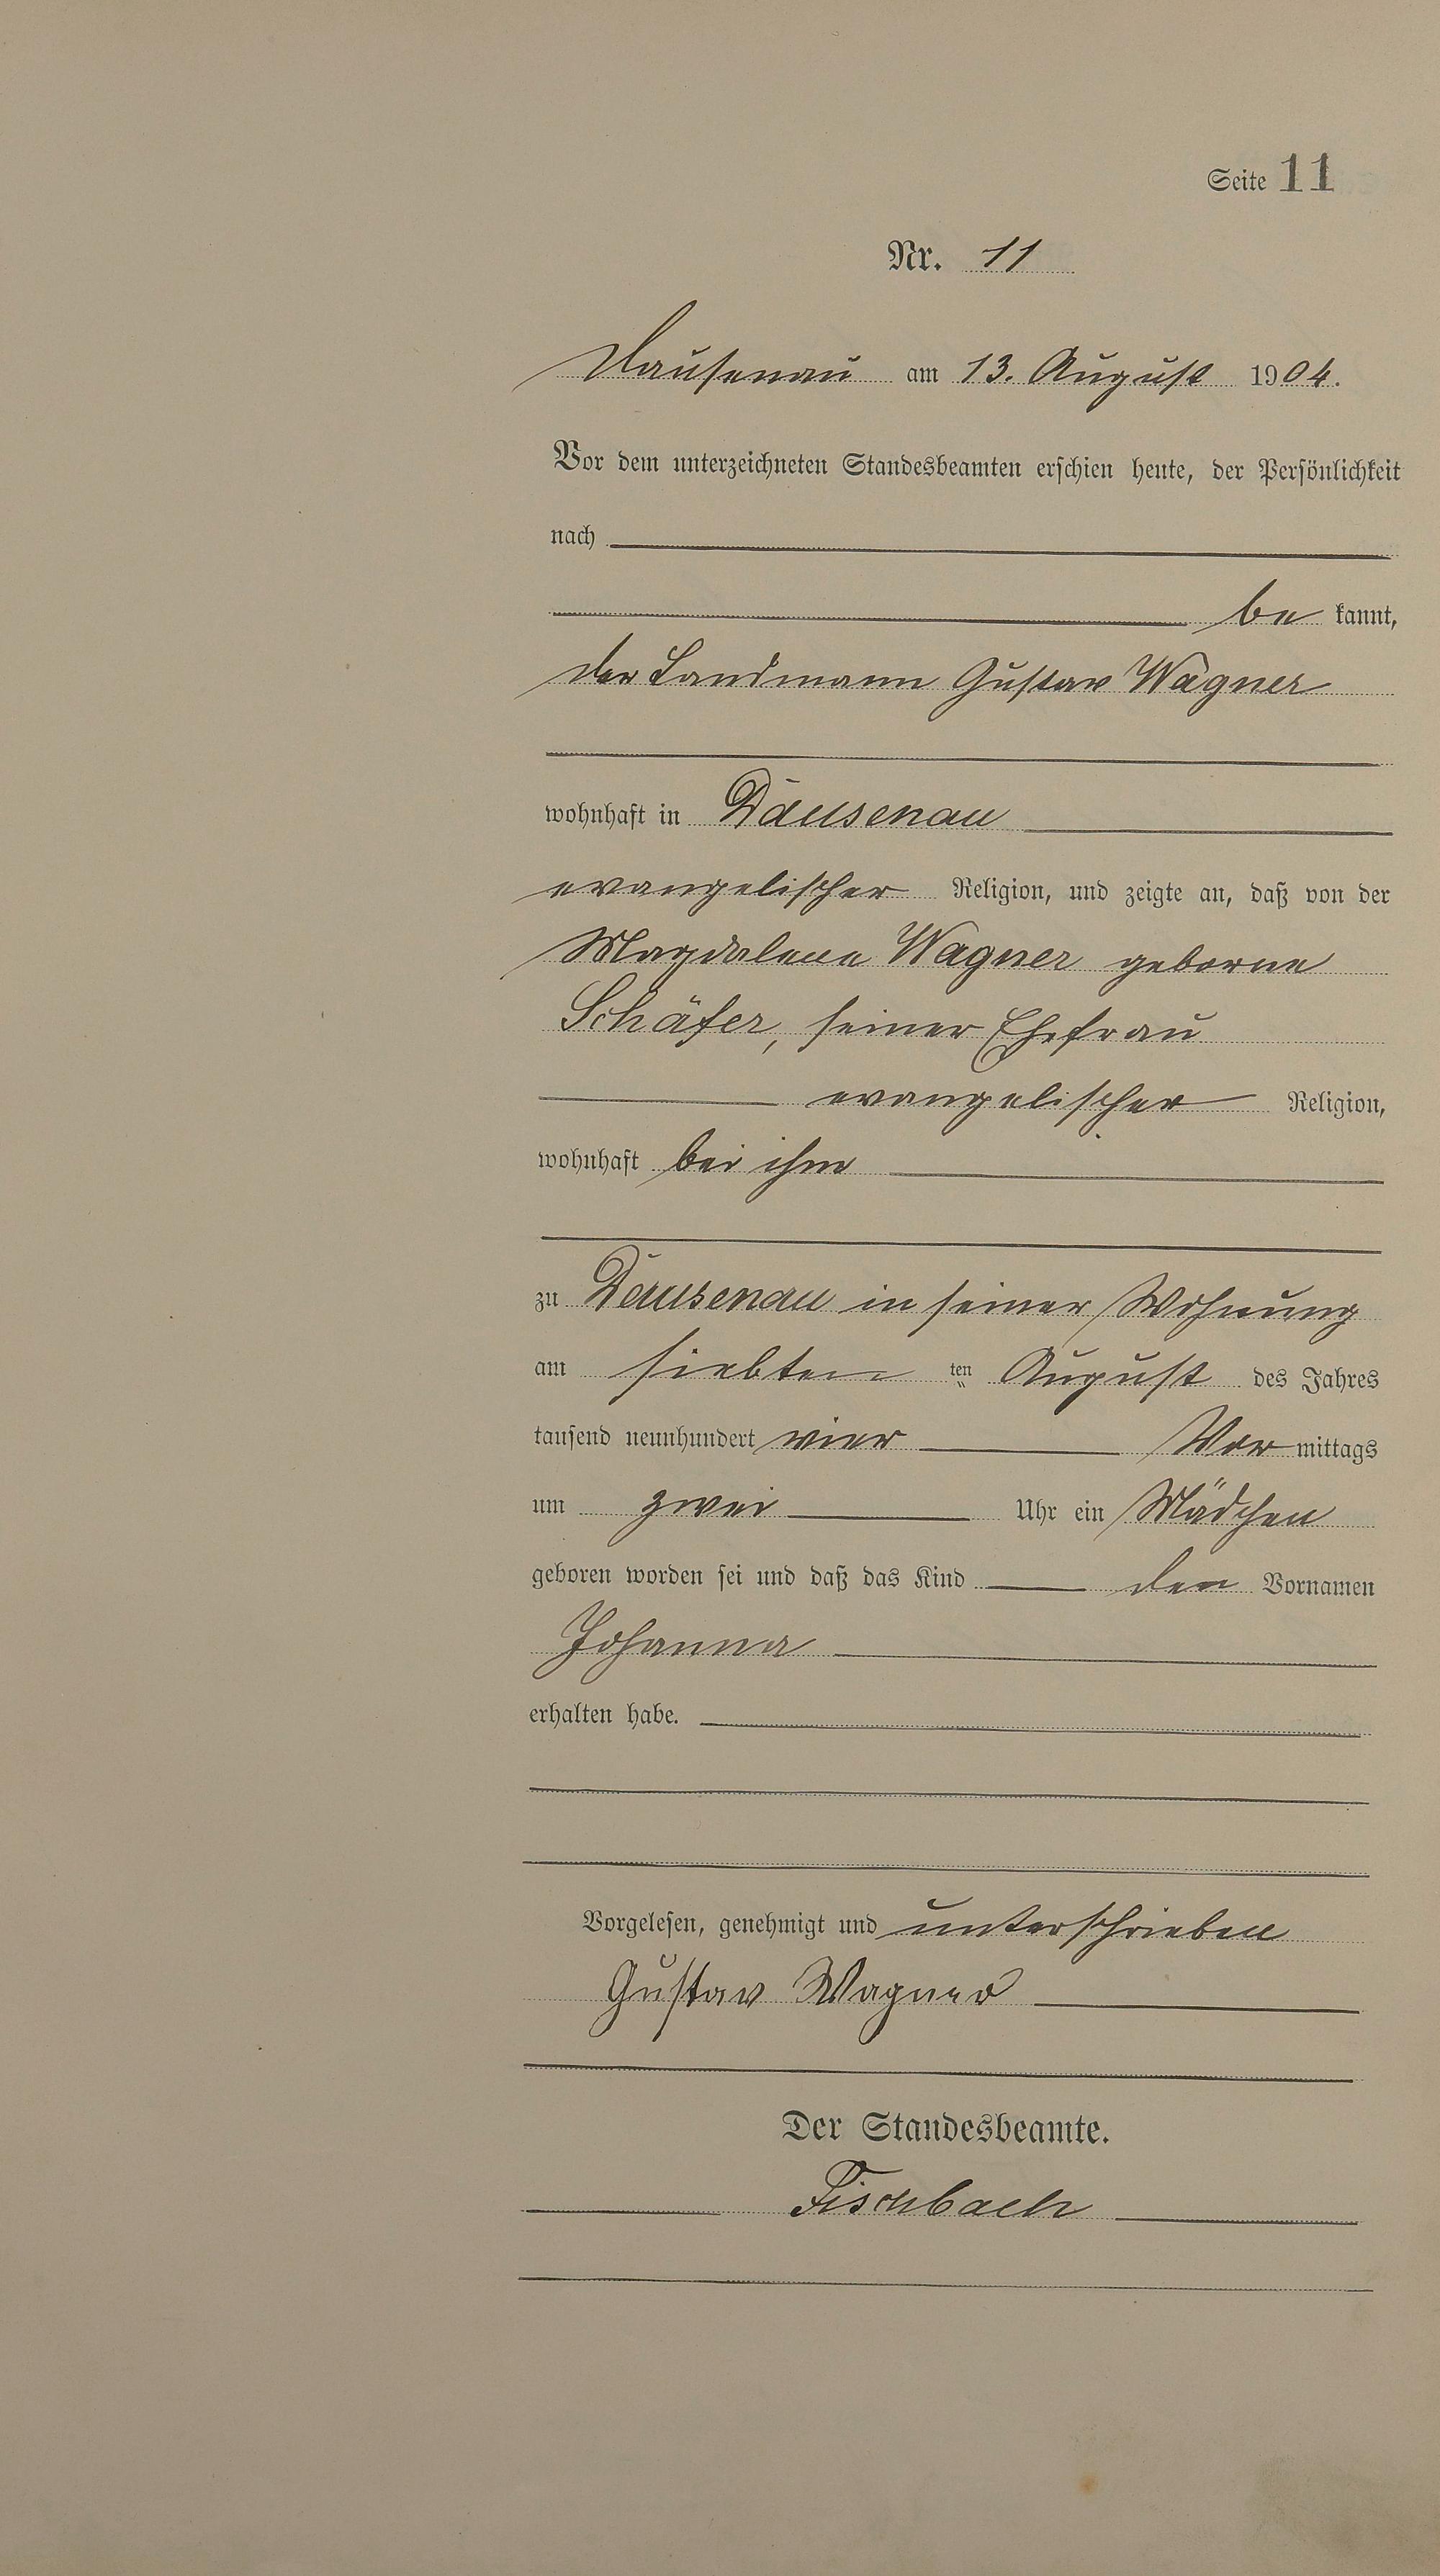 Seite 11
Nr. 11
Dausenau am 13. August 1904.
Vor dem unterzeichneten Standesbeamten erschien heute, der Persönlichkeit
nach
be kannt,
der Landmann Gustav Wagner
wohnhaft in Dausenau
evangelischer Religion, und zeigte an, daß von der
Magdalena Wagner geborne
Schäfer, seiner Ehefrau
evangelischer Religion,
wohnhaft bei ihm
zu Dausenau in seiner Wohnung
am siebten ten August des Jahres
tausend neunhundert vier Vor mittags
um zwei Uhr ein Mädchen
geboren worden sei und daß das Kind den Vornamen
Johanna
erhalten habe.
Vorgelesen, genehmigt und unterschrieben
Gustav Wagner
Der Standesbeamte.
Fischbach